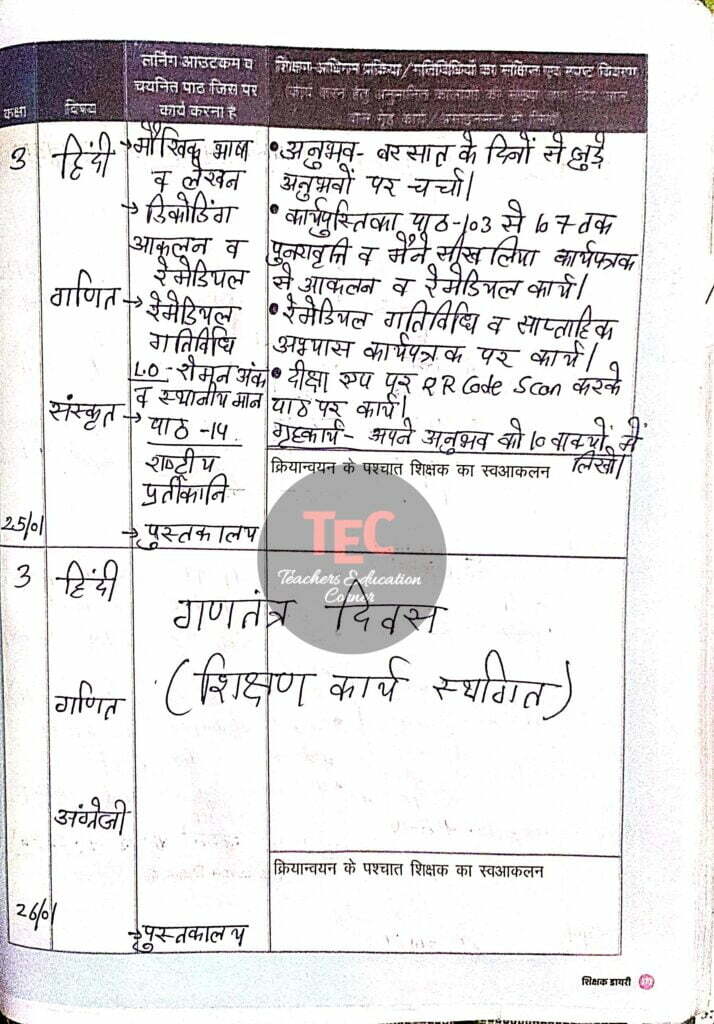 कक्षा
विषय
लर्निंग आउटकम व
चयनित पाठ जिस पर
कार्य करना है
शिक्षण-अधिगम प्रक्रिया/गतिविधियों का संक्षिप्त एवं स्पष्ट विवरण
3
हिंदी
→मौखिक भाषा
व लेखन
→डिकोडिंग
आकलन व
रेमेडियल
गणित
→रेमेडियल
गतिविधि
L.O - रोमन अंक
व स्थानीय मान
संस्कृत
→पाठ -14
राष्ट्रीय
प्रतीकानि
→पुस्तकालय
25/01
• अनुभव - बरसात के दिनों से जुड़े
अनुभवों पर चर्चा।
• कार्यपुस्तिका पाठ-103 से 107 तक
पुनरावृत्ति व मैंने सीख लिया कार्यपत्रक
से आकलन व रेमेडियल कार्य।
• रेमेडियल गतिविधि व साप्ताहिक
अभ्यास कार्यपत्रक पर कार्य।
• दीक्षा एप पर QR Code Scan करके
पाठ पर कार्य।
गृहकार्य - अपने अनुभव को 10 वाक्यों में
लिखो।
क्रियान्वयन के पश्चात शिक्षक का स्वआकलन
TEC
Teachers Education
Corner
3
हिंदी
गणतंत्र दिवस
(शिक्षण कार्य स्थगित)
गणित
अंग्रेजी
क्रियान्वयन के पश्चात शिक्षक का स्वआकलन
26/01
→पुस्तकालय
शिक्षक डायरी